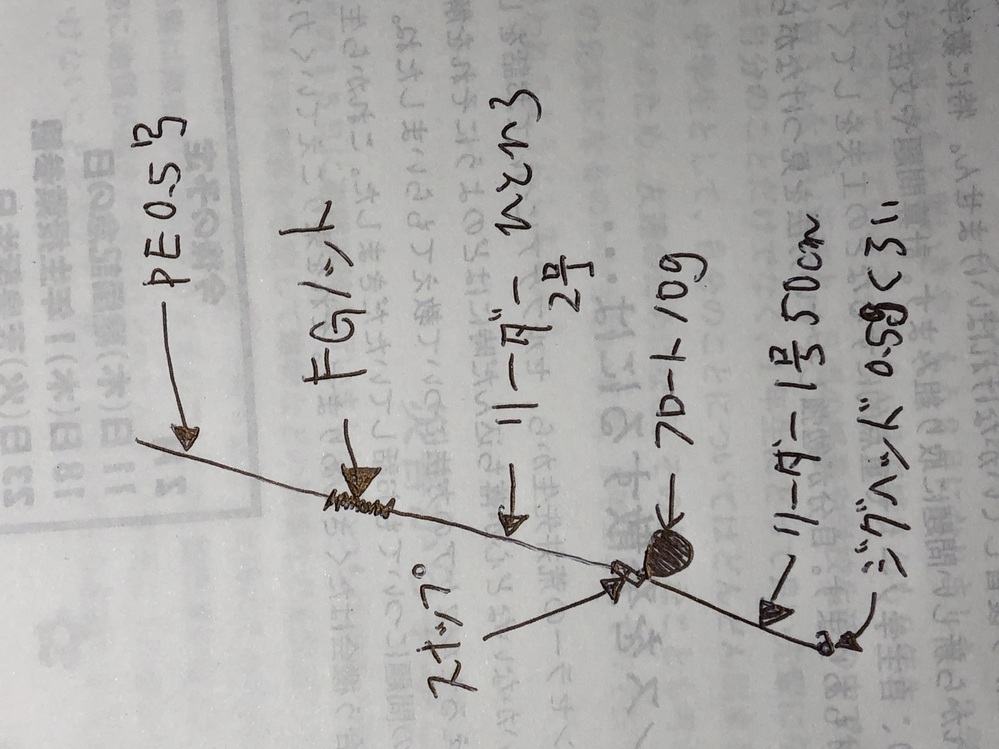 PE0.5号
FGノット
リーダー ひとひろ
2号
スナップ
フロート10g
リーダー1号50cm
ジグヘッド 0.5gくらい